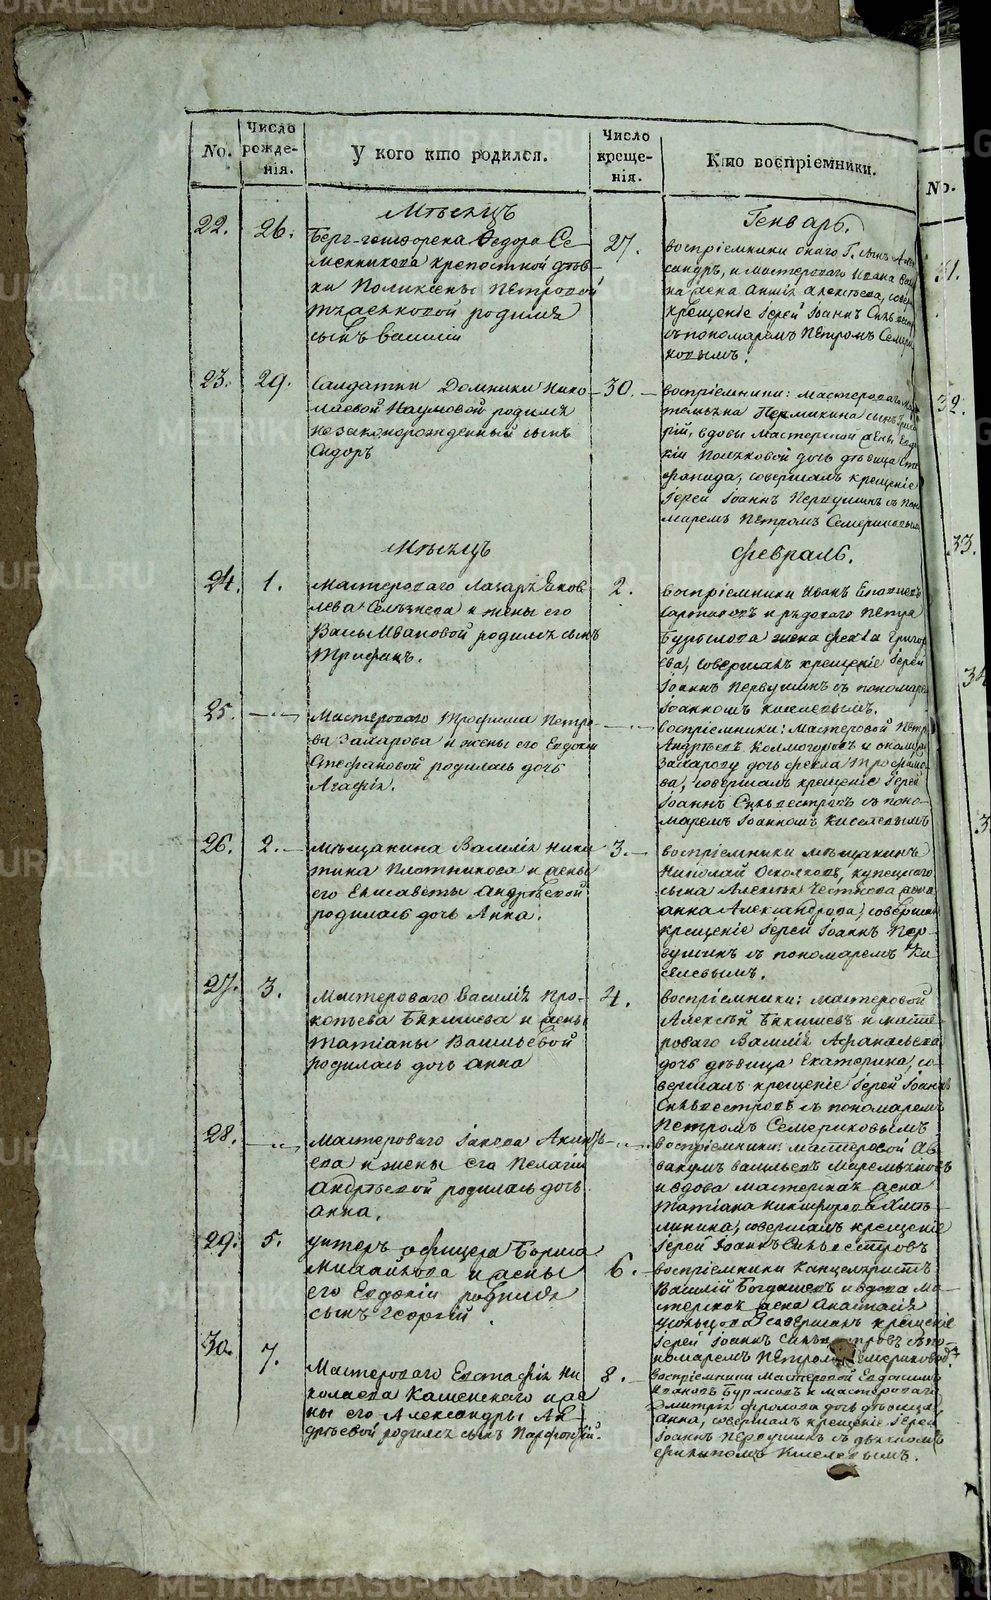 METRIKI.GASO-URAL.RU
No.
Число рожденія.
У кого кто родился.
Число крещенія.
Кто воспріемники.
No.
Мѣсяцъ
Генварь.
22.
26.
Берг-гешворена Ѳедора Се-
менникова крепостной дѣв-
ки Поликсены Петровой
родился
сынъ Василій
27.
воспріемники онаго Г. сынъ Але
сандръ, и мастероваго Ивана
на жена Анна Алексѣева, совер
крещеніе Іерей Іоаннъ Сильвест
съ пономаремъ Петромъ Семери
ковымъ.
23.
29.
Салдатки Домники Нико
лаевой Наумовой родился
незаконорожденный сынъ
Сидоръ
30.
воспріемники: мастероваго
Пермикина сынъ Григо
рій, вдовы мастерской жены Евдо
кіи Поляковой дочь дѣвица Сте
фанида, совершалъ крещеніе
Іерей Іоаннъ Первушинъ съ поно
маремъ Петромъ Семериковымъ
Мѣсяцъ
Февраль.
24.
1.
Мастероваго Лазаря Яков
лева Селезнева и жены его
Васы Ивановой родился сынъ
Трифанъ.
2.
воспріемники Иванъ
и рядоваго Петра
Бурылова жена Фекла Григор
ева, совершалъ крещеніе Іерей
Іоаннъ Первушинъ съ пономаремъ
Іоанномъ Киселевымъ.
25.
Мастероваго Трофима Петро
ва Захарова и жены его Евдокіи
Стефановой родилась дочь
Агафія.
воспріемники: Мастеровой Петръ
Андрѣевъ Колмогоровъ и онаго
Захарову дочь Фекла Трофимо
ва, совершалъ крещеніе Іерей
Іоаннъ Сильвестровъ съ поно-
маремъ Іоанномъ Киселевымъ
26.
2.
Мѣщанина Василія Ники
тина Плотникова и жены
его Елисаветы Андрѣевой
родилась дочь Анна.
3.
воспріемники мѣщанинъ
Николай, купецкаго
сына Алексѣя жена
Анна Александрова, совершалъ
крещеніе Іерей Іоаннъ Пер-
вушинъ съ пономаремъ Ки
селевымъ.
27.
3.
Мастероваго Василія Про-
копьева Бякишева и жены
Татіаны Васильевой
родилась дочь Анна
4.
воспріемники: мастеровой
Алексѣй Бякишевъ и масте-
роваго Василія Афанасьева
дочь дѣвица Екатерина, со
вершалъ крещеніе Іерей Іоаннъ
Сильвестровъ съ пономаремъ
Петромъ Семериковымъ
28.
Мастероваго Іакова
ева и жены его Пелагіи
Андрѣевой родилась дочь
Анна.
воспріемники: мастеровой Ав
вакумъ Васильевъ Маремьяновъ
и вдова мастерская жена
Татіана Никифорова
совершалъ крещеніе
Іерей Іоаннъ Сильвестровъ
29.
5.
унтеръ офицера Бориса
Михайлова и жены
его Евдокіи родился
сынъ Георгій.
6.
воспріемники Канцеляристъ
Василій Богдашевъ и вдова ма-
стерская жена Анастасія
совершалъ крещеніе
Іерей Іоаннъ Сильвестровъ съ по-
номаремъ Петромъ Семериковымъ
30.
7.
Мастероваго Евстафія Ни
колаева Каменскаго и же
ны его Александры Ан-
дрѣевой родился сынъ Парфеній.
8.
воспріемники Мастеровой Евдокимъ
Ивановъ Бурмасовъ и мастероваго
Димитрія Фролова дочь дѣвица
Анна, совершалъ крещеніе Іерей
Іоаннъ Первушинъ съ дьячкомъ
Филипомъ Киселевымъ.
31.
32.
33.